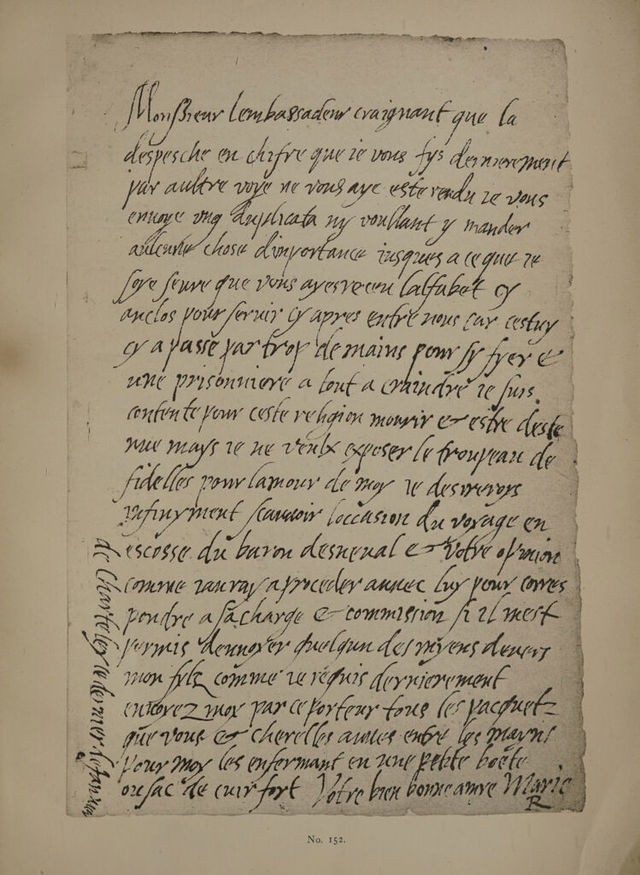 Monsieur lembassadeur craignant que la
despesche en chifre que ie vous fys dernierement
par aultre voye ne vous aye este rendu ie vous
envoye ung duplicata ny voullant y mander
aulcune chose dimportance iusques a ce que ie
soye seure que vous ayes receu lalfabet cy
anclos pour servir cy apres entre nous car cestuy
cy a passe par trop de mains pour sy fyer &
une prisonniere a tout a craindre ie suis
contente pour ceste religion mourir & estre deste
nue mays ie ne veulx exposer le troupeau de
fidelles pour lamour de moy ie desireroys
infinyment scavoir loccasion du voyage en
escosse du baron desneval & votre opinion
comme iauray a proceder avvec luy pour corres
pondre a sa charge & commission si il mest
permis denvoyer quelqun des myens devers
mon fylz comme ie requis dernierement
envoyez moy par ce porteur tous les pacquetz
que vous & cherelles avies entre les mayns
pour moy les enfermant en une petite boete
ou sac de cuir fort Votre bien bonne amye Marie
R
de Charteley le dernier de Janvier
No. 152.